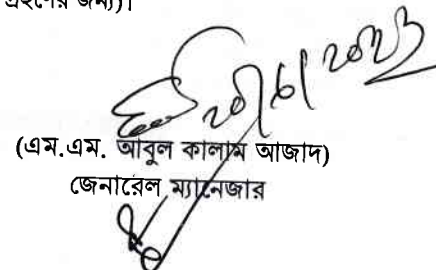 গ্রহণের জন্য)।
(এম.এম. আবুল কালাম আজাদ)
জেনারেল ম্যানেজার